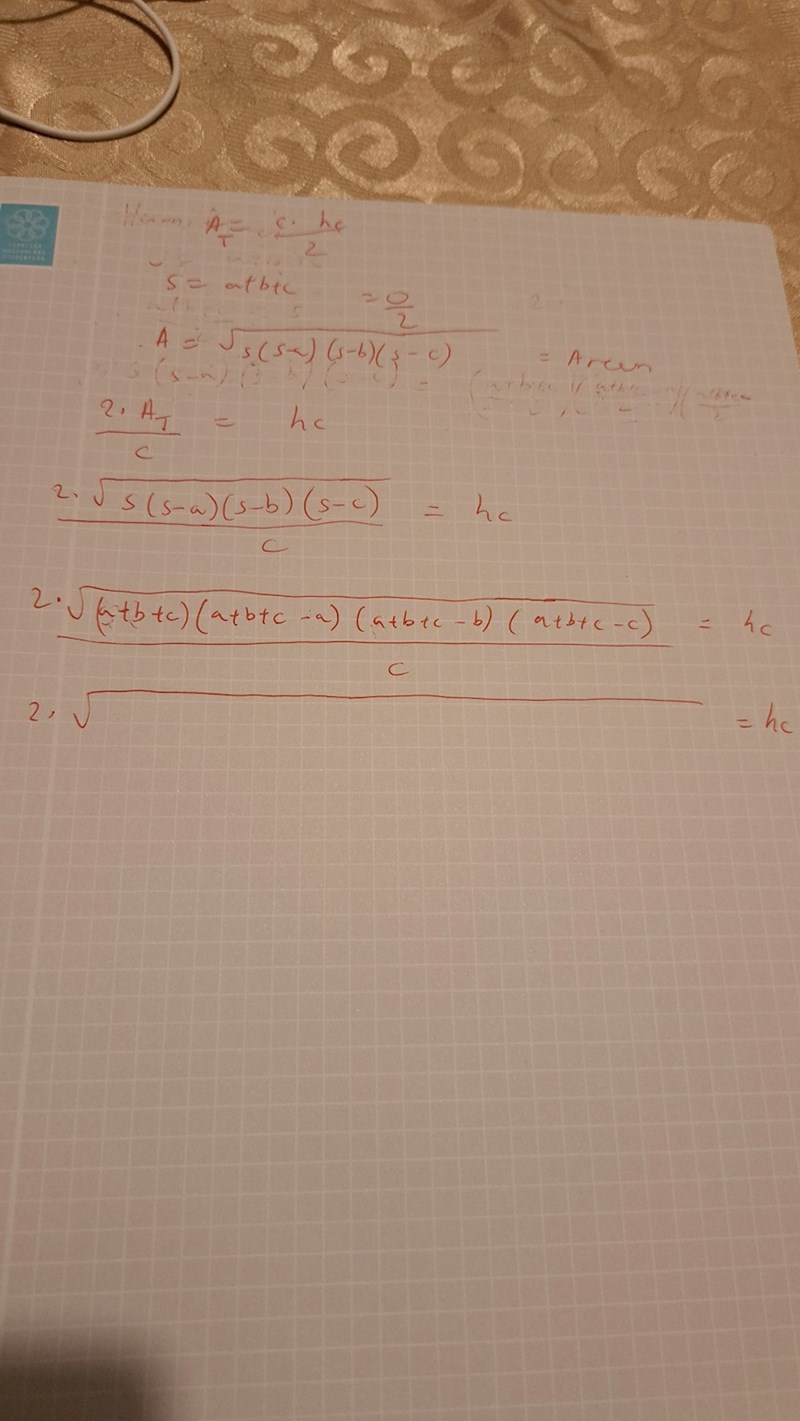 Heron: A_T = c · hc / 2
s = a+b+c = O/2
A = √s(s-a)(s-b)(s-c) = Arean
2 · A_T / c = hc
2 · √s(s-a)(s-b)(s-c) / c = hc
2 · √(a+b+c)(a+b+c-a)(a+b+c-b)(a+b+c-c) / c = hc
2 · √ = hc